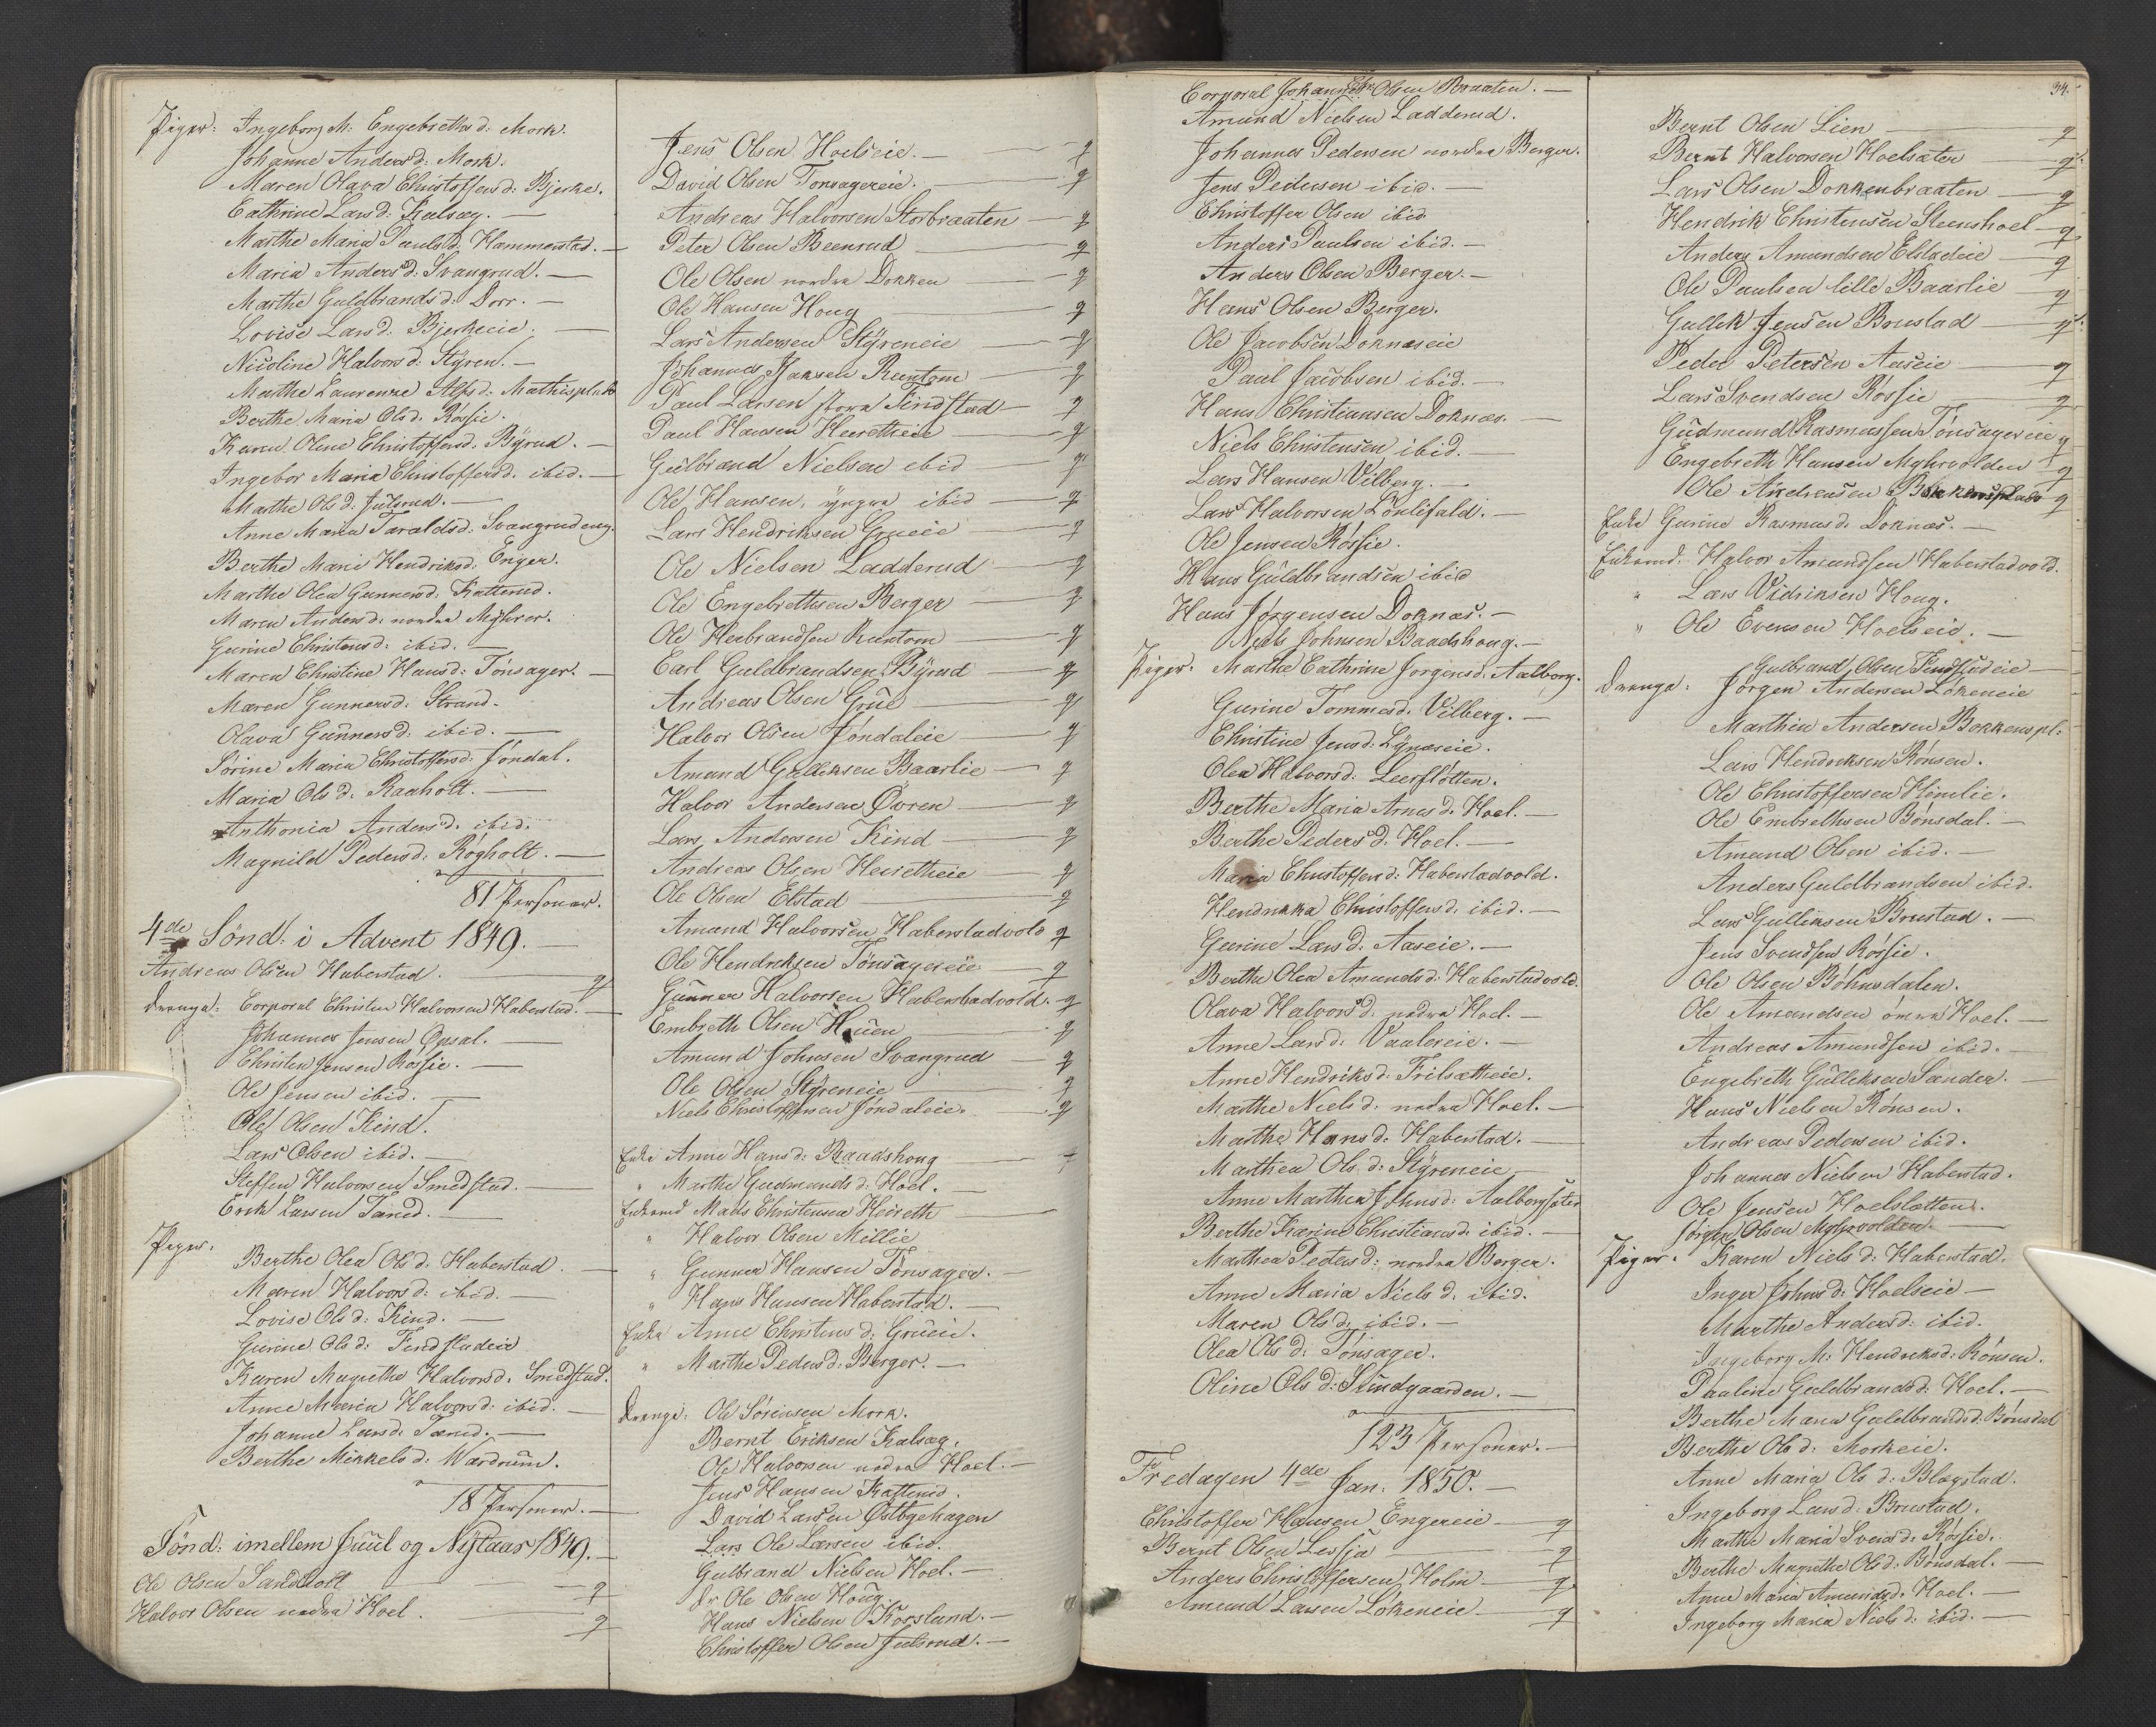 Piger: Ingeborg M: Engebrethsd: Mork.
Johanne Andersd: Mork.
Maren Olava Christoffersd: Bjerke.
Cathrine Larsd: Kalsæg. —
Marthe Maria Paulsd: Hammerstad. —
Maria Andersd: Svangrud. —
Marthe Guldbrandsd: Dorr. —
Lovise Larsd: Bjerkeeie. —
Nicoline Halvorsd: Styren. —
Marthe Laurenze Alfsd: Mathisplads
Berthe Maria Olsd: Røssie.
Karen Olene Christoffersd: Byrud. —
Ingebor Maria Christoffersd: ibid. —
Marthe Olsd: Julsrud. —
Anne Maria Taraldsd: Svangrudeng.
Berthe Marie Hendriksd: Enger.
Marthe Olea Gunnersd: Katterud.
Maren Andersd: nordre Myhrer.
Gurine Christensd: ibid. —
Maren Christine Hansd: Tønsager. —
Maren Gunnersd: Strand.
Olava Gunnersd: ibid. —
Sørine Maria Christoffersd: Jøndal.
Maria Olsd: Raaholt. —
Anthonia Andersd: ibid:
Magnild Pedersd: Røgholt. —
81 Personer.
4de Sønd: i Advent 1849. —
Andreas Olsen Haberstad. — q
Drenge: Corporal Christen Halvorsen Haberstad. —
Johannes Jensen Opsal. —
Christen Jensen Røssie. —
Ole Jensen ibid. —
Ole Olsen Kind.
Lars Olsen ibid. —
Steffen Halvorsen Smedstad. —
Erik Larsen Tærud. —
Piger: Berthe Olea Olsd: Haberstad. —
Maren Halvorsd: ibid. —
Lovise Olsd: Kind. —
Gurine Olsd: Findstadeie
Karen Magrethe Halvorsd: Smedstad.
Anne Maria Halvorsd: ibid. —
Johanne Larsd: Tærud. —
Berthe Mikkelsd: Wardrum.
18 Personer. —
Sønd: imellem Juul og Nytaar 1849. —
Ole Olsen Sandholt — q
Halvor Olsen nedre Hoel. — q
Jens Olsen Hoelseie. — q
David Olsen Tonsagereie. — q
Andreas Halvorsen Storbraaten — q
Peter Olsen Beenrud — q
Ole Olsen nordre Dokken — q
Ole Hansen Houg — q
Lars Andersen Styreneie — q
Johannes Jansen Runtom — q
Paul Larsen store Findstad — q
Paul Hansen Heiretheie — q
Gulbrand Nielsen ibid — q
Ole Hansen, yngre ibid — q
Lars Hendriksen Grueeie — q
Ole Nielsen Ladderud — q
Ole Engebrethsen Berger — q
Ole Herbrandsen Runtom — q
Carl Guldbrandsen Byrud — q
Andreas Olsen Grue — q
Halvor Olsen Jøndaleie — q
Amund Gulliksen Baarlie — q
Halvor Andersen Øvren — q
Lars Andersen Kind — q
Andreas Olsen Heiretheie — q
Ole Olsen Elstad — q
Amund Halvorsen Haberstadvold q
Ole Hendriksen Tønsagereie — q
Gunner Halvorsen Haberstadvold. q
Embreth Olsen Huen — q
Amund Johnsen Svangrud — q
Ole Olsen Styreneie — q
Niels Christoffersen Jøndaleie. — q
Enke Anne Hansd: Baadshoug —
" Marthe Gudmundsd: Hoel. —
Enkemd Mads Christensen Heireth —
" Halvor Olsen Millie
" Gunner Hansen Tønsager. —
" Hans Hansen Haberstad. —
Enke Anne Christensd: Grueeie.
" Marthe Pedersd: Berger. —
Drenge: Ole Sørensen Mork.
Bernt Eriksen Kalsæg.
Ole Halvorsen nedre Hoel. —
Jens Hansen Katterud.
David Larsen Østbyehagen
Lars Ole Larsen ibid.
Gulbrand Nielsen Hoel. —
Dr. Ole Olsen Houg.
Hans Nielsen Korslund. —
Christoffer Olsen Julsrud. —
Corporal Johannes Chr. Olsen Braaten. —
Amund Nielsen Ladderud.
Johannes Pedersen nordre Berger.
Jens Pedersen ibid. —
Christoffer Olsen ibid
Anders Paulsen ibid. —
Anders Olsen Berger. —
Hans Olsen Berger.
Ole Jacobsen Doknæseie
Paul Jacobsen ibid. —
Hans Christiansen Doknæs. —
Niels Christensen ibid. —
Lars Hansen Vilberg. —
Lars Halvorsen Lønlifald. —
Ole Jensen Røssie.
Hans Guldbrandsen ibid
Hans Jørgensen Doknæs. —
Niels Johnsen Baadshoug. —
Piger. Marthe Cathrine Jorgensd: Aalborg.
Gurine Tommesd: Vilberg. —
Christine Jensd: Lynæseie.
Olea Halvorsd: Leerfløtten.
Berthe Maria Arnesd: Hoel. —
Berthe Pedersd: Hoel. —
Maria Christoffersd: Haberstadvold.
Hendrikka Christoffersd: ibid. —
Gurine Larsd: Aaseie. —
Berthe Olea Amundsd: Haberstadvold.
Olava Halvorsd: nedre Hoel. —
Anne Larsd: Vaalereie. —
Anne Hendriksd: Frilsætheie.
Marthe Nielsd: nedre Hoel. —
Marthe Hansd: Haberstad. —
Marthea Olsd: Styreneie —
Anne Marthea Johnsd: Aalborgsæter
Berthe Karine Christiansd: ibid. —
Marthea Pedersd: nordre Berger.
Anne Maria Nielsd: ibid.
Maren Olsd: ibid. —
Olea Olsd: Tønsager.
Oline Olsd: Sundgaarden. —
123 Personer. —
Fredagen 4de Jan: 1850. —
Christoffer Hansen Engereie — q
Bernt Olsen Lessja — q
Anders Christoffersen Holm — q
Amund Larsen Løkeneie — q
34.
Bernt Olsen Lien — q
Bernt Halvorsen Hoelsæter — q
Lars Olsen Dokkenbraaten — q
Hendrik Christensen Steenshoel — q
Anders Amundsen Elstadeie — q
Ole Paulsen lille Baarlie — q
Gullek Jensen Brustad — q
Peder Petersen Aaseie — q
Lars Svendsen Røssie — q
Gudmund Rasmussen Tønsagereie q
Engebreth Hansen Myhrvolden — q
Ole Andreasen Bækkensplads q
Enke Gurine Rasmusd: Doknæs. —
Enkemd. Halvor Amundsen Haberstadvold.
" Lars Vidriksen Houg.
" Ole Evensen Hoelseie. —
Gulbrand Olsen Findstadeie —
Drenge: Jørgen Andersen Løkeneie
Marthin Andersen Bekkenspl:
Lars Hendriksen Rønsen.
Ole Christoffersen Himlie.
Ole Embrethsen Bønsdal. —
Amund Olsen ibid. —
Anders Guldbrandsen ibid.
Lars Gulliksen Brustad. —
Jens Svendsen Røssie.
Ole Olsen Bøhnsdalen.
Ole Amundsen øvre Hoel. —
Andreas Amundsen ibid. —
Engebreth Gulleksen Sander. —
Hans Nielsen Rønsen.
Andreas Pedersen ibid.
Johannes Nielsen Haberstad.
Ole Jensen Hoelsletten.
Jørgen Olsen Myhrvolden —
Piger. Karen Nielsd: Haberstad.
Inger Johnsd: Hoelseie —
Marthe Andersd: ibid.
Ingeborg M: Hendriksd: Rønsen.
Pauline Guldbrandsd: Hoel. —
Berthe Maria Guldbrandsd: Bønsdal
Berthe Olsd: Morkeie.
Anne Maria Olsd: Blegstad.
Ingeborg Larsd: Brustad.
Marthe Maria Svensd: Røssie.
Berthe Magrethe Olsd: Bønsdal. —
Anne Maria Amundsd: Hoel. —
Ingeborg Maria Nielsd: ibid. —